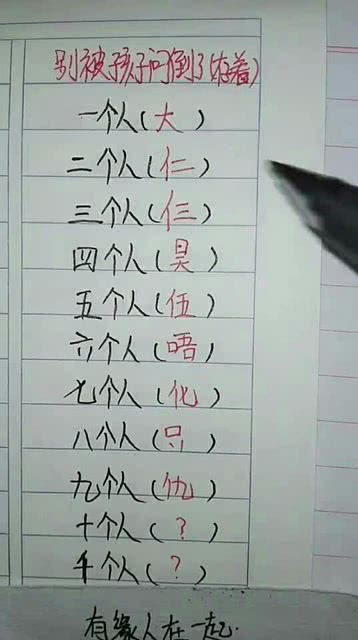 别被孩子问倒了(存着)
一个人(大)
二个人(仁)
三个人(仨)
四个人(昊)
五个人(伍)
六个人(唔)
七个人(化)
八个人(只)
九个人(仇)
十个人(?)
千个人(?)
有缘人在一起.